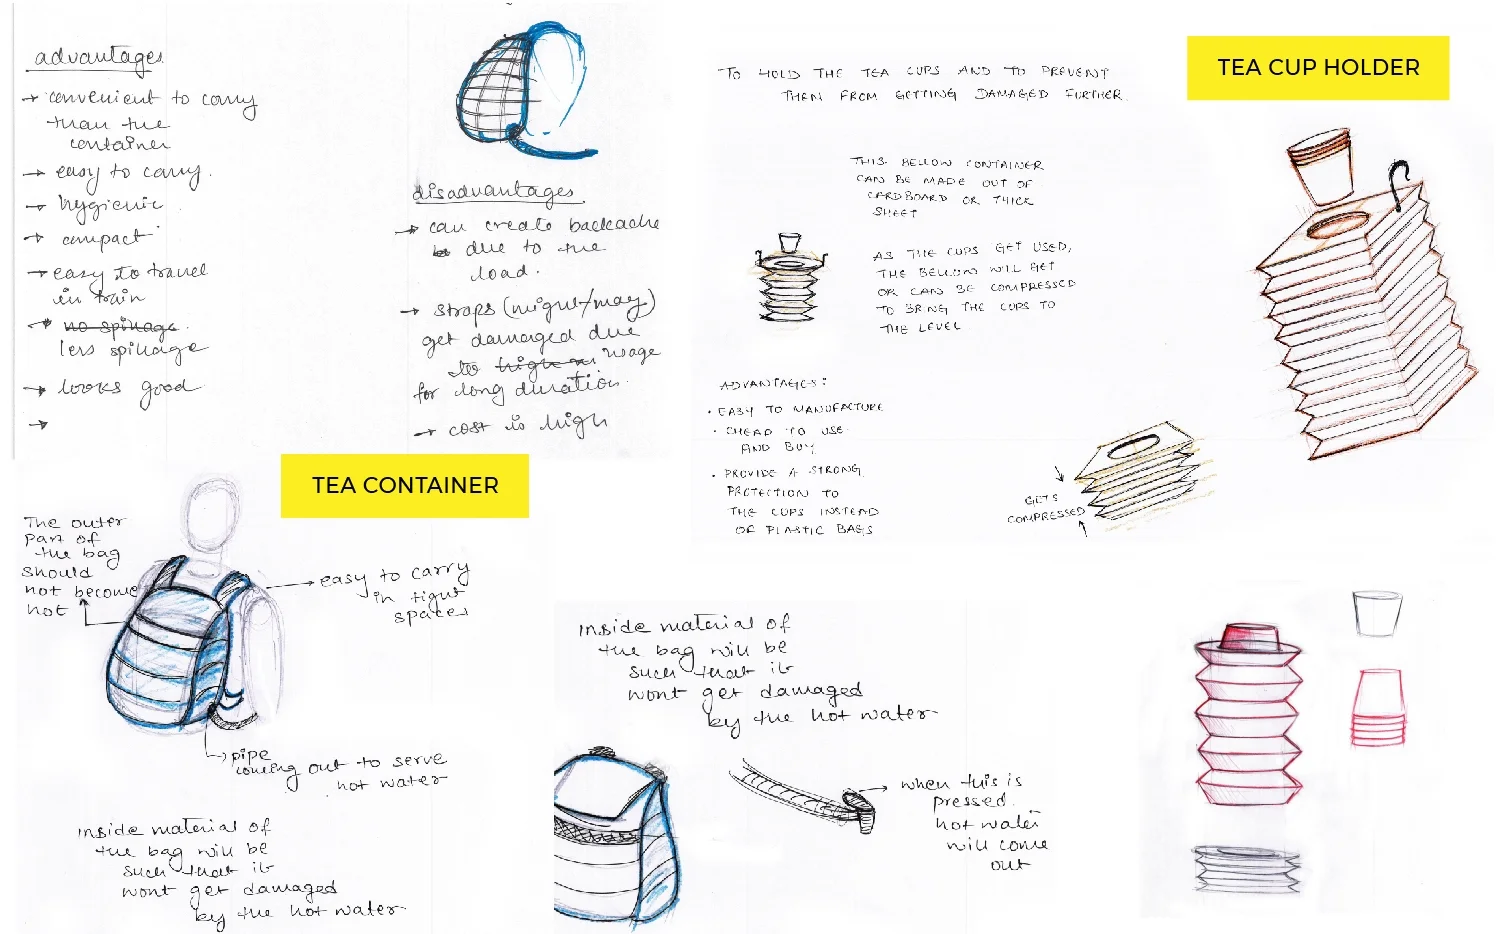 advantages
→ convenient to carry
than the
container
→ easy to carry.
→ hygienic
→ compact
→ easy to travel
in train
→ no spillage.
less spillage
→ looks good
→
disadvantages
→ can create backcache
due to the
load.
→ straps (might/may)
get damaged due
to high usage
for long duration.
→ cost is high
TEA CUP HOLDER
TO HOLD THE TEA CUPS AND TO PREVENT
THEN FROM GETTING DAMAGED FURTHER.
THIS BELLOW CONTAINER
CAN BE MADE OUT OF
CARDBOARD OR THICK
SHEET
AS THE CUPS GET USED,
THE BELLOW WILL GET
OR CAN BE COMPRESSED
TO BRING THE CUPS TO
THE LEVEL
ADVANTAGES:
• EASY TO MANUFACTURE
• CHEAP TO USE
AND BUY
• PROVIDE A STRONG
PROTECTION TO
THE CUPS INSTEAD
OF PLASTIC BAGS
GETS
COMPRESSED
TEA CONTAINER
The outer
part of
the bag
should
not become
hot
→ easy to carry
in tight
spaces
→ pipe
coming out to serve
hot water
inside material of
the bag will be
such that it
wont get damaged
by the hot water
inside material of
the bag will be
such that it
wont get damaged
by the hot water
→ when this is
pressed.
hot water
will come
out